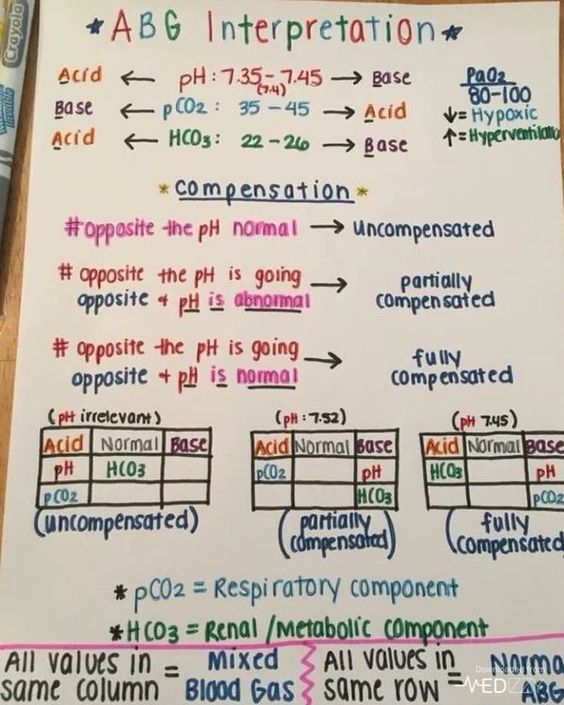 Crayola
* ABG Interpretation *
Acid ← pH: 7.35 - 7.45 → Base
(7.4)
Base ← pCO2: 35 - 45 → Acid
Acid ← HCO3: 22 - 26 → Base
PaO2
80-100
↓= Hypoxic
↑= Hyperventilatio
* Compensation *
# opposite the pH normal → uncompensated
# opposite the pH is going
opposite + pH is abnormal → partially
compensated
# opposite the pH is going
opposite + pH is normal → fully
compensated
(pH irrelevant)
Acid Normal Base
pH HCO3
pCO2
(uncompensated)
(pH: 7.52)
Acid Normal Base
pCO2 pH
HCO3
(partially
compensated)
(pH 7.45)
Acid Normal Base
HCO3 pH
pCO2
(fully
compensated
* pCO2 = Respiratory component
* HCO3 = Renal/Metabolic component
All values in
same column = Mixed
Blood Gas
All values in
same row = Norma
ABG
Downloaded from